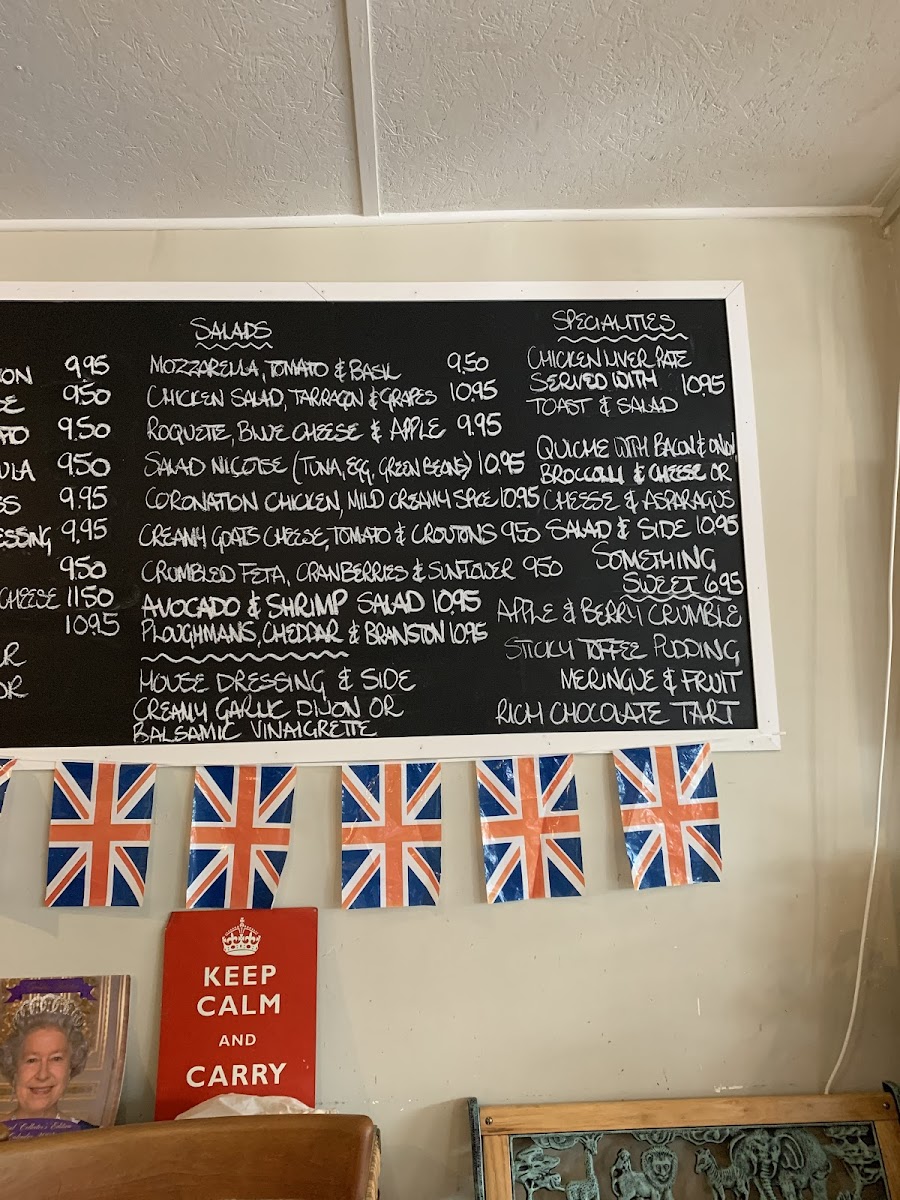 ON 9.95
SE 9.50
TO 9.50
ULA 9.50
SS 9.95
ESSING 9.95
9.50
CHEESE 11.50
10.95
R
OR
SALADS
MOZZARELLA, TOMATO & BASIL 9.50
CHICKEN SALAD, TARRAGON & GRAPES 10.95
ROQUETE, BLUE CHEESE & APPLE 9.95
SALAD NICOISE (TUNA, EGG, GREEN BEANS) 10.95
CORONATION CHICKEN, MILD CREAMY SPICE 10.95
CREAMY GOATS CHEESE, TOMATO & CROUTONS 9.50
CRUMBLED FETA, CRANBERRIES & SUNFLOWER 9.50
AVOCADO & SHRIMP SALAD 10.95
PLOUGHMANS, CHEDDAR & BRANSTON 10.95
HOUSE DRESSING & SIDE
CREAMY GARLIC DIJON OR
BALSAMIC VINAIGRETTE
SPECIALITIES
CHICKEN LIVER PATE
SERVED WITH 10.95
TOAST & SALAD
QUICHE WITH BACON & ONION,
BROCCOLI & CHEESE OR
CHEESE & ASPARAGUS
SALAD & SIDE 10.95
SOMETHING
SWEET 6.95
APPLE & BERRY CRUMBLE
STICKY TOFFEE PUDDING
MERINGUE & FRUIT
RICH CHOCOLATE TART
KEEP
CALM
AND
CARRY
Collector's Edition